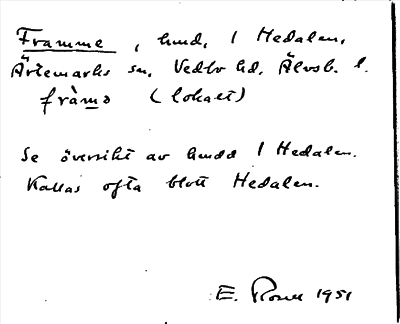 Framme, hmd, i Hedalen,
Ärtemarks sn, Vedbo hd, Älvsb. l.
fràmə (lokalt)
Se översikt av hmdd i Hedalen.
Kallas ofta blott Hedalen.
E. Rosell 1951